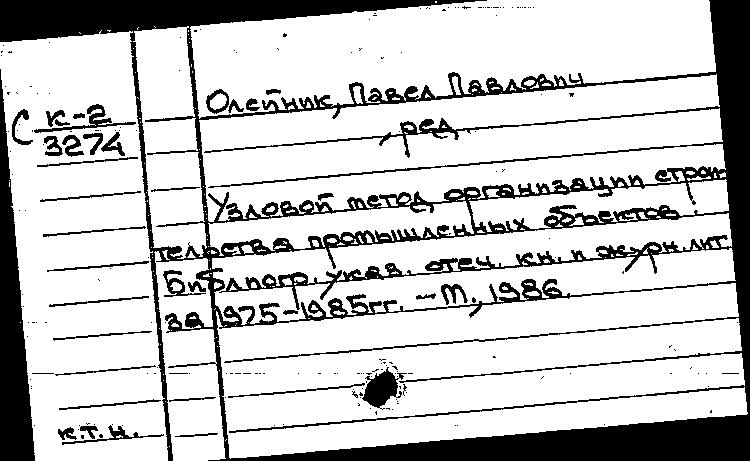 Олейник, Павел Павлович
С К-2
3274
, ред.
Узловой метод организации строи-
тельства промышленных объектов:
Библиогр. указ. отеч. кн. и журн. лит.
за 1975-1985гг. - М., 1986.
к.т.н.